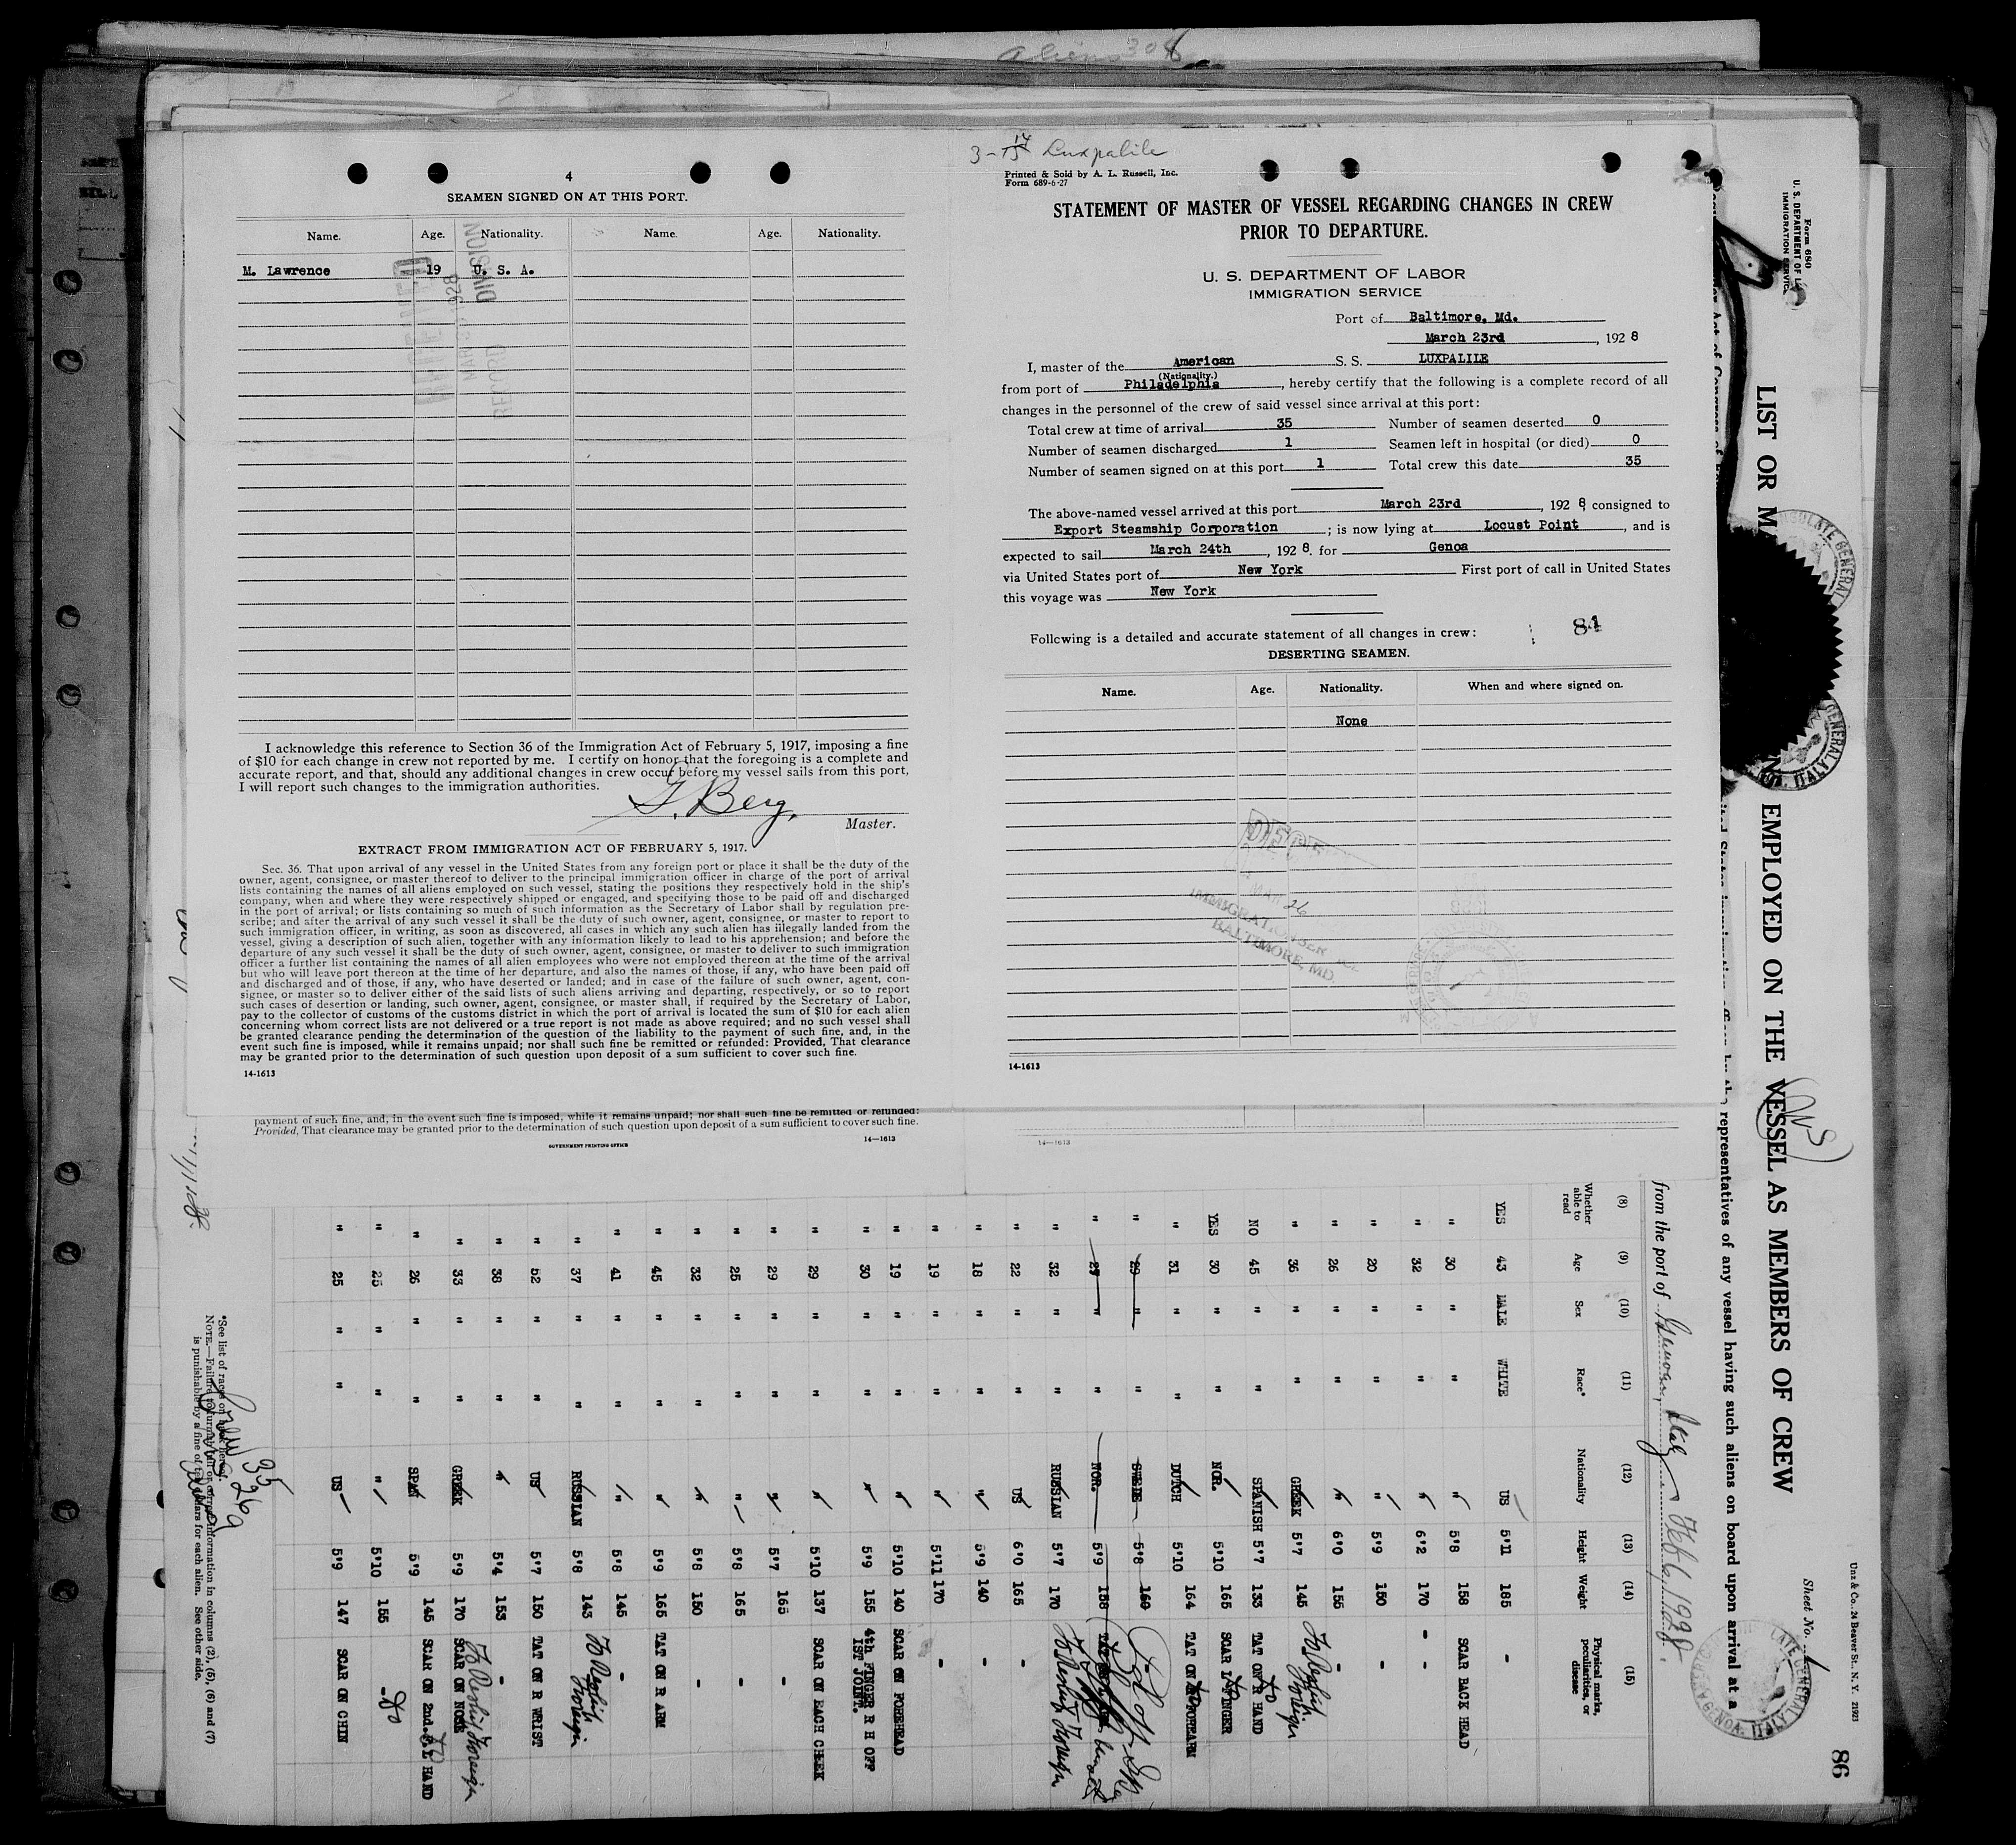 Aliens 30
4
SEAMEN SIGNED ON AT THIS PORT.
Name. Age. Nationality. Name. Age. Nationality.
M. Lawrence 19 U. S. A.
RECORD DIVISION
I acknowledge this reference to Section 36 of the Immigration Act of February 5, 1917, imposing a fine
of $10 for each change in crew not reported by me. I certify on honor that the foregoing is a complete and
accurate report, and that, should any additional changes in crew occur before my vessel sails from this port,
I will report such changes to the immigration authorities.
G. Berg.
Master.
EXTRACT FROM IMMIGRATION ACT OF FEBRUARY 5, 1917.
Sec. 36. That upon arrival of any vessel in the United States from any foreign port or place it shall be the duty of the
owner, agent, consignee, or master thereof to deliver to the principal immigration officer in charge of the port of arrival
lists containing the names of all aliens employed on such vessel, stating the positions they respectively hold in the ship's
company, when and where they were respectively shipped or engaged, and specifying those to be paid off and discharged
in the port of arrival; or lists containing so much of such information as the Secretary of Labor shall by regulation pre-
scribe; and after the arrival of any such vessel it shall be the duty of such owner, agent, consignee, or master to report to
such immigration officer, in writing, as soon as discovered, all cases in which any such alien has illegally landed from the
vessel, giving a description of such alien, together with any information likely to lead to his apprehension; and before the
departure of any such vessel it shall be the duty of such owner, agent, consignee, or master to deliver to such immigration
officer a further list containing the names of all alien employees who were not employed thereon at the time of the arrival
but who will leave port thereon at the time of her departure, and also the names of those, if any, who have been paid off
and discharged and of those, if any, who have deserted or landed; and in case of the failure of such owner, agent, con-
signee, or master so to deliver either of the said lists of such aliens arriving and departing, respectively, or so to report
such cases of desertion or landing, such owner, agent, consignee, or master shall, if required by the Secretary of Labor,
pay to the collector of customs of the customs district in which the port of arrival is located the sum of $10 for each alien
concerning whom correct lists are not delivered or a true report is not made as above required; and no such vessel shall
be granted clearance pending the determination of the question of the liability to the payment of such fine, and, in the
event such fine is imposed, while it remains unpaid; nor shall such fine be remitted or refunded: Provided, That clearance
may be granted prior to the determination of such question upon deposit of a sum sufficient to cover such fine.
14-1613
payment of such fine, and, in the event such fine is imposed, while it remains unpaid; nor shall such fine be remitted or refunded:
Provided, That clearance may be granted prior to the determination of such question upon deposit of a sum sufficient to cover such fine.
GOVERNMENT PRINTING OFFICE 14—1613
3-15 17 Luxpalile
Printed & Sold by A. L. Russell, Inc.
Form 689-6-27
STATEMENT OF MASTER OF VESSEL REGARDING CHANGES IN CREW
PRIOR TO DEPARTURE.
U. S. DEPARTMENT OF LABOR
IMMIGRATION SERVICE
Port of Baltimore, Md.
March 23rd, 1928
I, master of the American S. S. LUXPALILE
(Nationality.)
from port of Philadelphia, hereby certify that the following is a complete record of all
changes in the personnel of the crew of said vessel since arrival at this port:
Total crew at time of arrival 35 Number of seamen deserted 0
Number of seamen discharged 1 Seamen left in hospital (or died) 0
Number of seamen signed on at this port 1 Total crew this date 35
The above-named vessel arrived at this port March 23rd, 1928, consigned to
Export Steamship Corporation; is now lying at Locust Point, and is
expected to sail March 24th, 1928. for Genoa
via United States port of New York First port of call in United States
this voyage was New York
Following is a detailed and accurate statement of all changes in crew: 81
DESERTING SEAMEN.
Name. Age. Nationality. When and where signed on.
None
MAR 26
IMMIGRATION SER
BALTIMORE, MD
14-1613
14—1613
Form 680
U. S. DEPARTMENT OF L
IMMIGRATION SERVIC
LIST OR M EMPLOYED ON THE VESSEL AS MEMBERS OF CREW
representatives of any vessel having such aliens on board upon arrival at a
from the port of Genoa, Italy Feb 6, 1928.
Unz & Co., 24 Beaver St., N. Y. 21923
Sheet No. 1
86
GENOA, ITALY
(8) (9) (10) (11) (12) (13) (14) (15)
Whether able to read Age Sex Race* Nationality Height Weight Physical marks, peculiarities, or disease
YES 43 MALE WHITE US 5'11 185 -
" 30 " " " 5'8 158 SCAR BACK HEAD
" 32 " " " 6'2 170 -
" 20 " " " 5'9 150 -
" 26 " " " 6'0 155 -
" 36 " " GREEK 5'7 145 To Reship Foreign
NO 45 " " SPANISH 5'7 133 TAT ON R HAND
YES 30 " " NOR. 5'10 165 SCAR L FINGER
" 31 " " DUTCH 5'10 164 TAT ON FOREARM
" 29 " " SWEDE 5'8 160
" 27 " " NOR. 5'9 158
" 32 " " RUSSIAN 5'7 170 To Reship Foreign
" 22 " " US 6'0 165 -
" 18 " " " 5'9 140 -
" 19 " " " 5'11 170 -
" 19 " " " 5'10 140 SCAR ON FOREHEAD
" 30 " " " 5'9 155 4th FINGER R H OFF 1ST JOINT.
" 29 " " " 5'10 137 SCAR ON EACH CHEEK
" 29 " " " 5'7 165 -
" 25 " " " 5'8 165 -
" 32 " " " 5'8 150 -
" 45 " " " 5'9 165 TAT ON R ARM
" 41 " " " 5'8 145 -
" 37 " " RUSSIAN 5'8 143 To Reship Foreign
" 52 " " US 5'7 150 TAT ON R WRIST
" 38 " " " 5'4 153 -
" 33 " " GREEK 5'9 170 SCAR ON NOSE To Reship Foreign
" 26 " " SPAN 5'9 145 SCAR ON 2nd. F L HAND
" 25 " " " 5'10 155 - Do
" 25 " " US 5'9 147 SCAR ON CHIN
*See list of races on back hereof.
NOTE.—Failure to furnish full or correct information in columns (2), (5), (6) and (7)
is punishable by a fine of ten dollars for each alien. See other side.
Crew 35
US 26